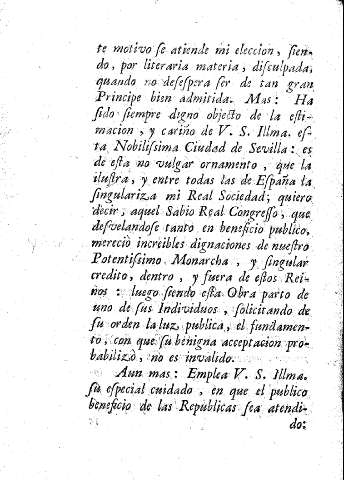 te motivo ſe atiende mi eleccion, ſien-
do, por literaria materia, diſculpada,
quando no deſeſpera ſer de tan gran
Principe bien admitida. Mas: Ha
ſido ſiempre digno objecto de la eſti-
macion, y cariño de V. S. Illma. eſ-
ta Nobiliſsima Ciudad de Sevilla: es
de eſta no vulgar ornamento, que la
iluſtra, y entre todas las de Eſpaña la
ſingulariza mi Real Sociedad; quiero
decir, aquel Sabio Real Congreſſo, que
deſvelandoſe tanto en beneficio publico,
mereciò increibles dignaciones de nueſtro
Potentiſsimo Monarcha, y ſingular
credito, dentro, y fuera de eſtos Rei-
nos: luego ſiendo eſta Obra parto de
uno de ſus Individuos, ſolicitando de
ſu orden la luz publica, el fundamen-
to, con que ſu benigna acceptacion pro-
babilizò, no es invalido.
Aun mas: Emplea V. S. Illma.
ſu eſpecial cuidado, en que el publico
beneficio de las Republicas ſea atendi-
do: